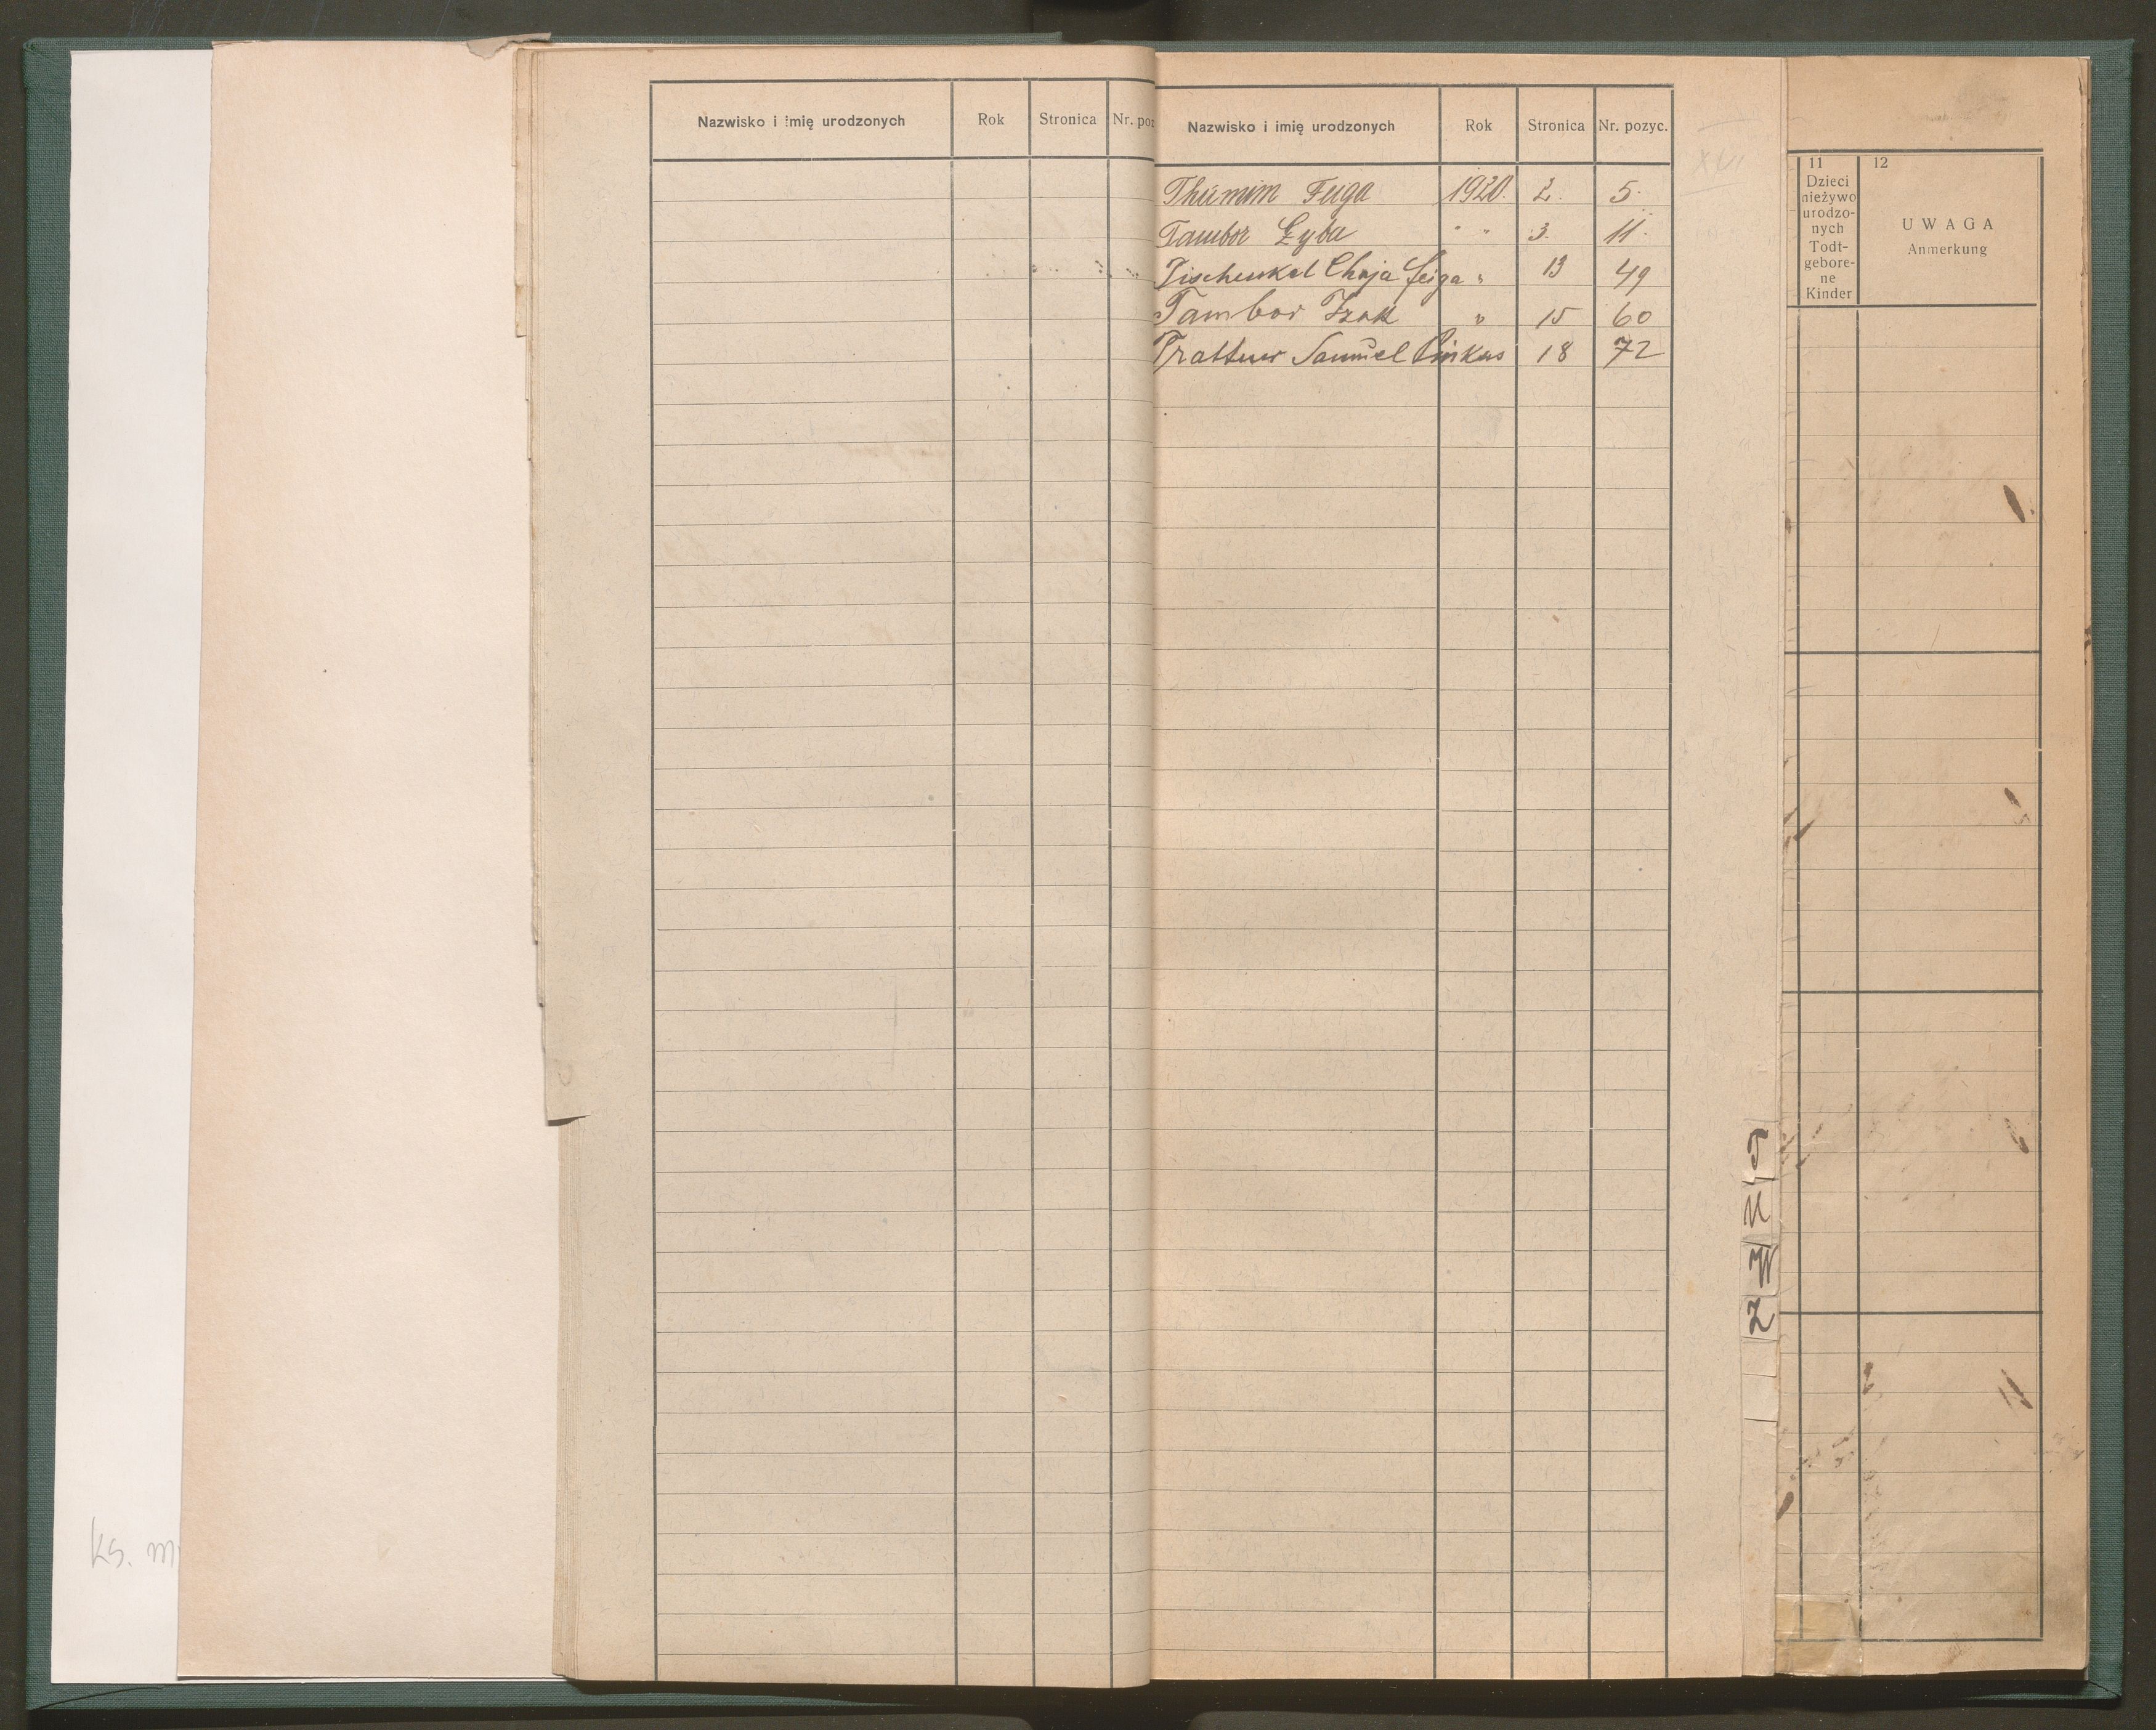 Nazwisko i imię urodzonych Rok Stronica Nr. poz
Nazwisko i imię urodzonych Rok Stronica Nr. pozyc.
Thumim Feiga 1920. 2. 5.
Tambor Zyba " " 3. 11.
Tischenkel Chaja Feiga " 13 49
Tambor Izak " 15 60
Trattner Samuel Pinkas 18 72
XVII
11
Dzieci
nieżywo
urodzo-
nych
Todt-
gebore-
ne
Kinder
12
UWAGA
Anmerkung
T
U
W
Z
ks. m